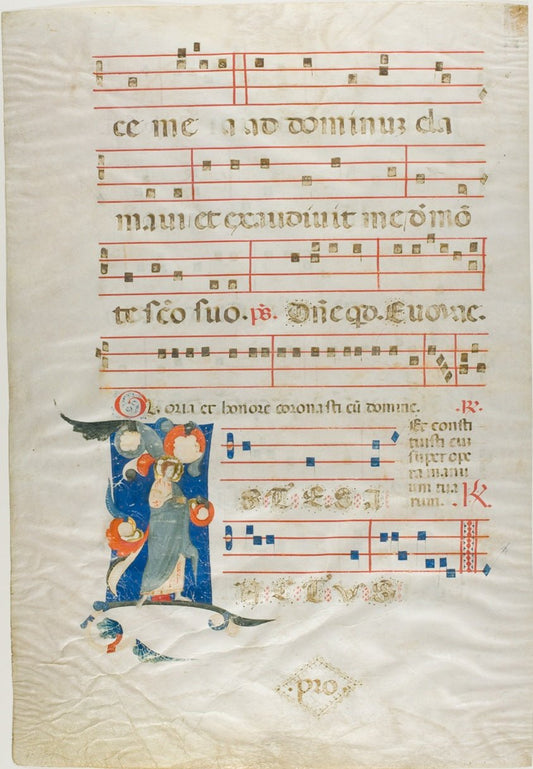 ce me a ad dominuz cla
maui et exaudiuit me de mō
te scō suo. ps. Dn̄e qd. Euouae.
Gloria et honore coronasti eū domine. .R.
Et consti
tuisti eū
super ope
ra manu
um tua
rum. R
STEI
pro